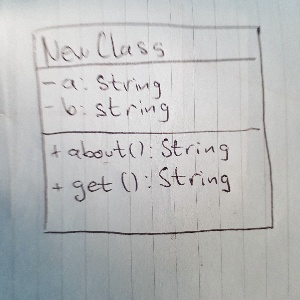 New Class
- a: String
- b: String
+ about(): String
+ get(): String